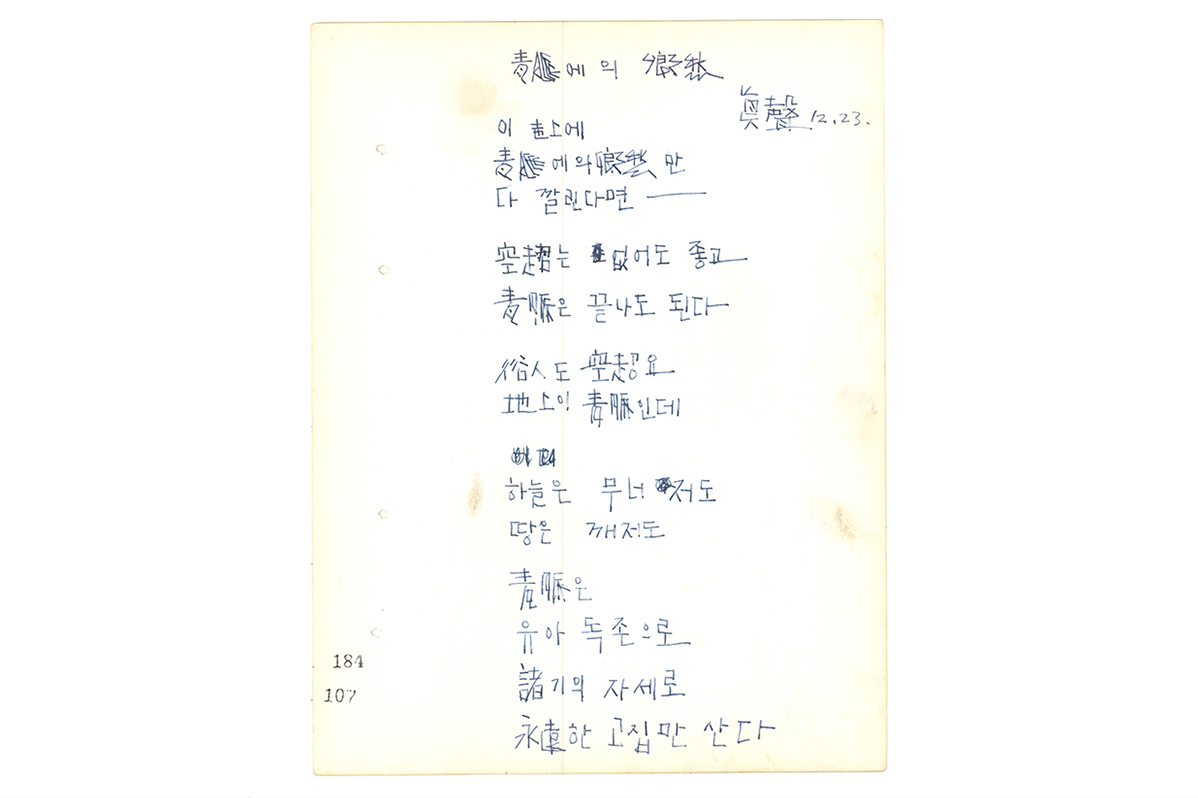 青에의 鄕愁
眞聲 12.23.
이 호느에
青에의 鄕愁만
다 깔린다면 ——
空超는 없어도 좋고
青脈은 끝나도 된다
俗人도 空超요
地上이 青脈인데
하늘은 무너저도
땅은 깨저도
青脈은
유아 독존으로
諸기의 자세로
永遠한 고집만 산다
184
107